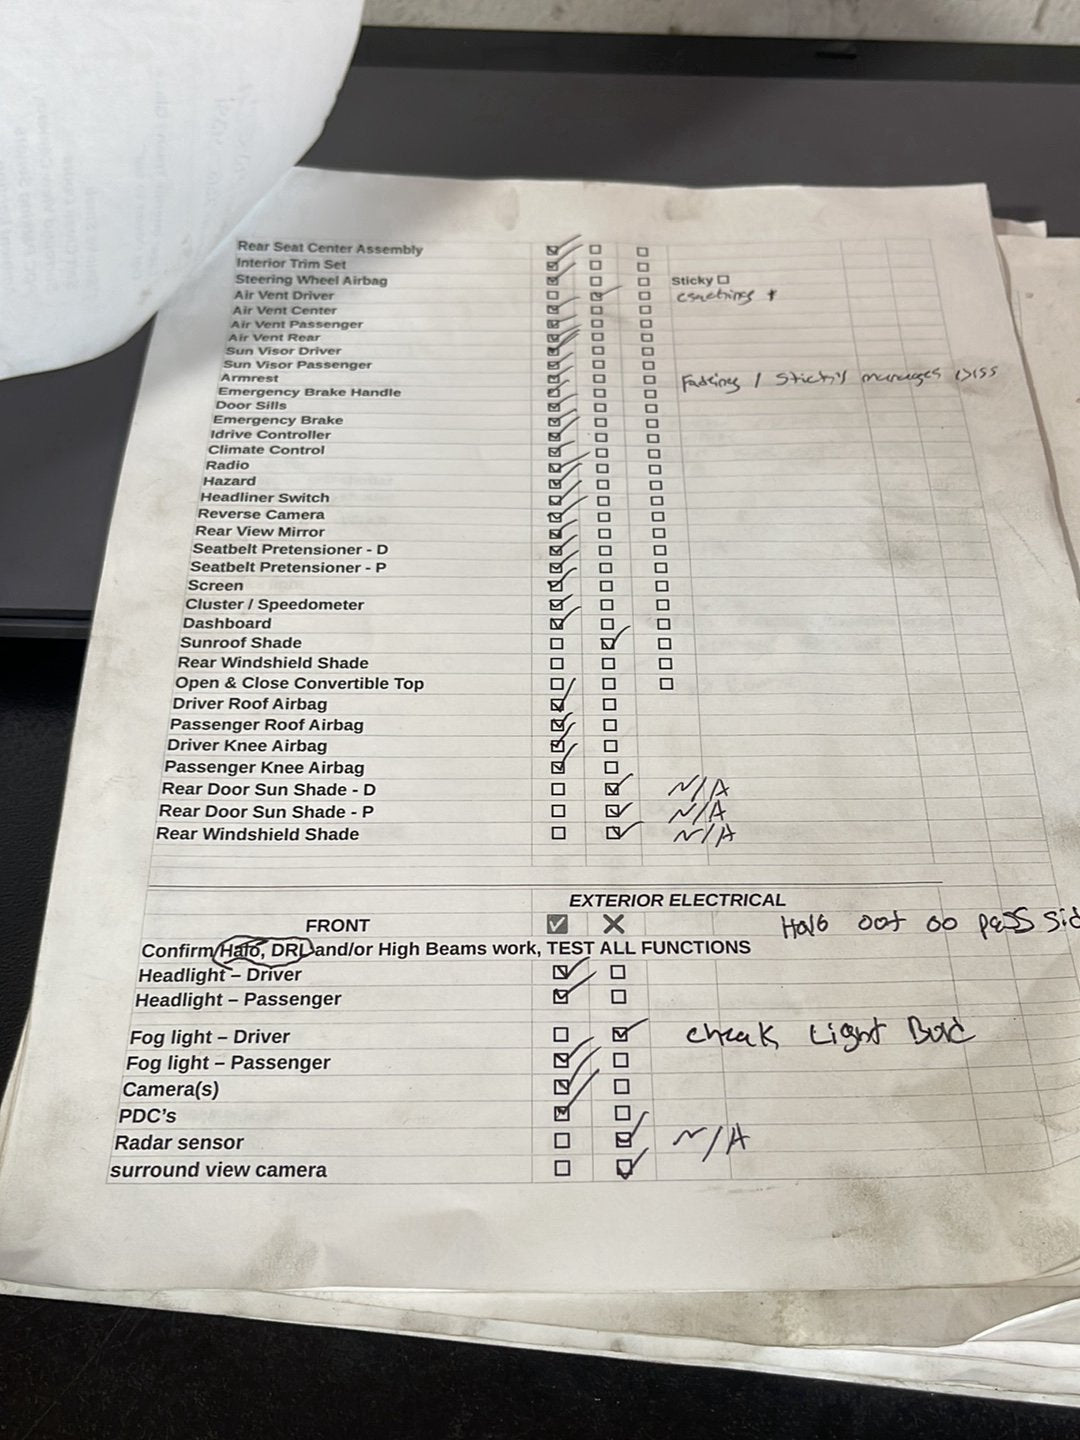 Rear Seat Center Assembly ☑ ☐ ☐
Interior Trim Set ☑ ☐ ☐
Steering Wheel Airbag ☑ ☐ ☐ Sticky ☐
Air Vent Driver ☐ ☑ ☐
Air Vent Center ☑ ☐ ☐
Air Vent Passenger ☑ ☐ ☐
Air Vent Rear ☑ ☐ ☐
Sun Visor Driver ☑ ☐ ☐
Sun Visor Passenger ☑ ☐ ☐
Armrest ☑ ☐ ☐ Fading /
Emergency Brake Handle ☑ ☐ ☐
Door Sills ☑ ☐ ☐
Emergency Brake ☑ ☐ ☐
Idrive Controller ☑ ☐ ☐
Climate Control ☑ ☐ ☐
Radio ☑ ☐ ☐
Hazard ☑ ☐ ☐
Headliner Switch ☑ ☐ ☐
Reverse Camera ☑ ☐ ☐
Rear View Mirror ☑ ☐ ☐
Seatbelt Pretensioner - D ☑ ☐ ☐
Seatbelt Pretensioner - P ☑ ☐ ☐
Screen ☑ ☐ ☐
Cluster / Speedometer ☑ ☐ ☐
Dashboard ☑ ☐ ☐
Sunroof Shade ☐ ☑ ☐
Rear Windshield Shade ☐ ☐ ☐
Open & Close Convertible Top ☐ ☐ ☐
Driver Roof Airbag ☑ ☐
Passenger Roof Airbag ☑ ☐
Driver Knee Airbag ☑ ☐
Passenger Knee Airbag ☑ ☐
Rear Door Sun Shade - D ☐ ☑ N/A
Rear Door Sun Shade - P ☐ ☑ N/A
Rear Windshield Shade ☐ ☑ N/A
EXTERIOR ELECTRICAL
FRONT ☑ ✕ Halo out on pass Sid
Confirm Halo, DRL and/or High Beams work, TEST ALL FUNCTIONS
Headlight – Driver ☑ ☐
Headlight – Passenger ☑ ☐
Fog light – Driver ☐ ☑ Light
Fog light – Passenger ☑ ☐
Camera(s) ☑ ☐
PDC's ☑ ☐
Radar sensor ☐ ☑ N/A
surround view camera ☐ ☑